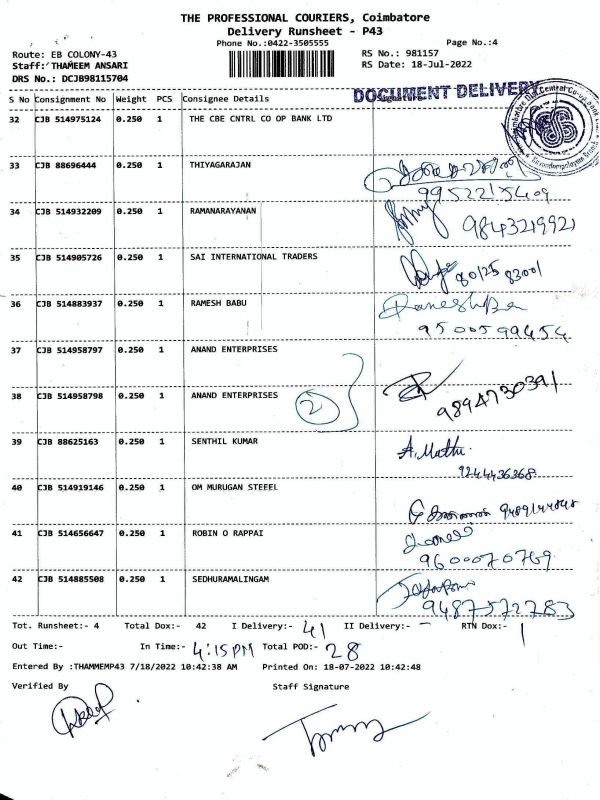 THE PROFESSIONAL COURIERS, Coimbatore
Delivery Runsheet - P43
Phone No.:0422-3505555
Page No.:4
Route: EB COLONY-43
RS No.: 981157
Staff: THAMEEM ANSARI
RS Date: 18-Jul-2022
DRS No.: DCJB98115704
S No Consignment No Weight PCS Consignee Details Signature
DOCUMENT DELIVERY
32 CJB 514975124 0.250 1 THE CBE CNTRL CO OP BANK LTD
33 CJB 88696444 0.250 1 THIYAGARAJAN
9952215409
34 CJB 514932209 0.250 1 RAMANARAYANAN
9843219921
35 CJB 514905726 0.250 1 SAI INTERNATIONAL TRADERS
80125 83001
36 CJB 514883937 0.250 1 RAMESH BABU
9500599454
37 CJB 514958797 0.250 1 ANAND ENTERPRISES
38 CJB 514958798 0.250 1 ANAND ENTERPRISES
2
9894730391
39 CJB 88625163 0.250 1 SENTHIL KUMAR A. Muthu
9244436368
40 CJB 514919146 0.250 1 OM MURUGAN STEEEL
41 CJB 514656647 0.250 1 ROBIN O RAPPAI
9600070769
42 CJB 514885508 0.250 1 SEDHURAMALINGAM
9487572783
Tot. Runsheet:- 4 Total Dox:- 42 I Delivery:- 41 II Delivery:- - RTN Dox:- 1
Out Time:- In Time:- 4:15PM Total POD:- 28
Entered By :THAMMEMP43 7/18/2022 10:42:38 AM Printed On: 18-07-2022 10:42:48
Verified By Staff Signature